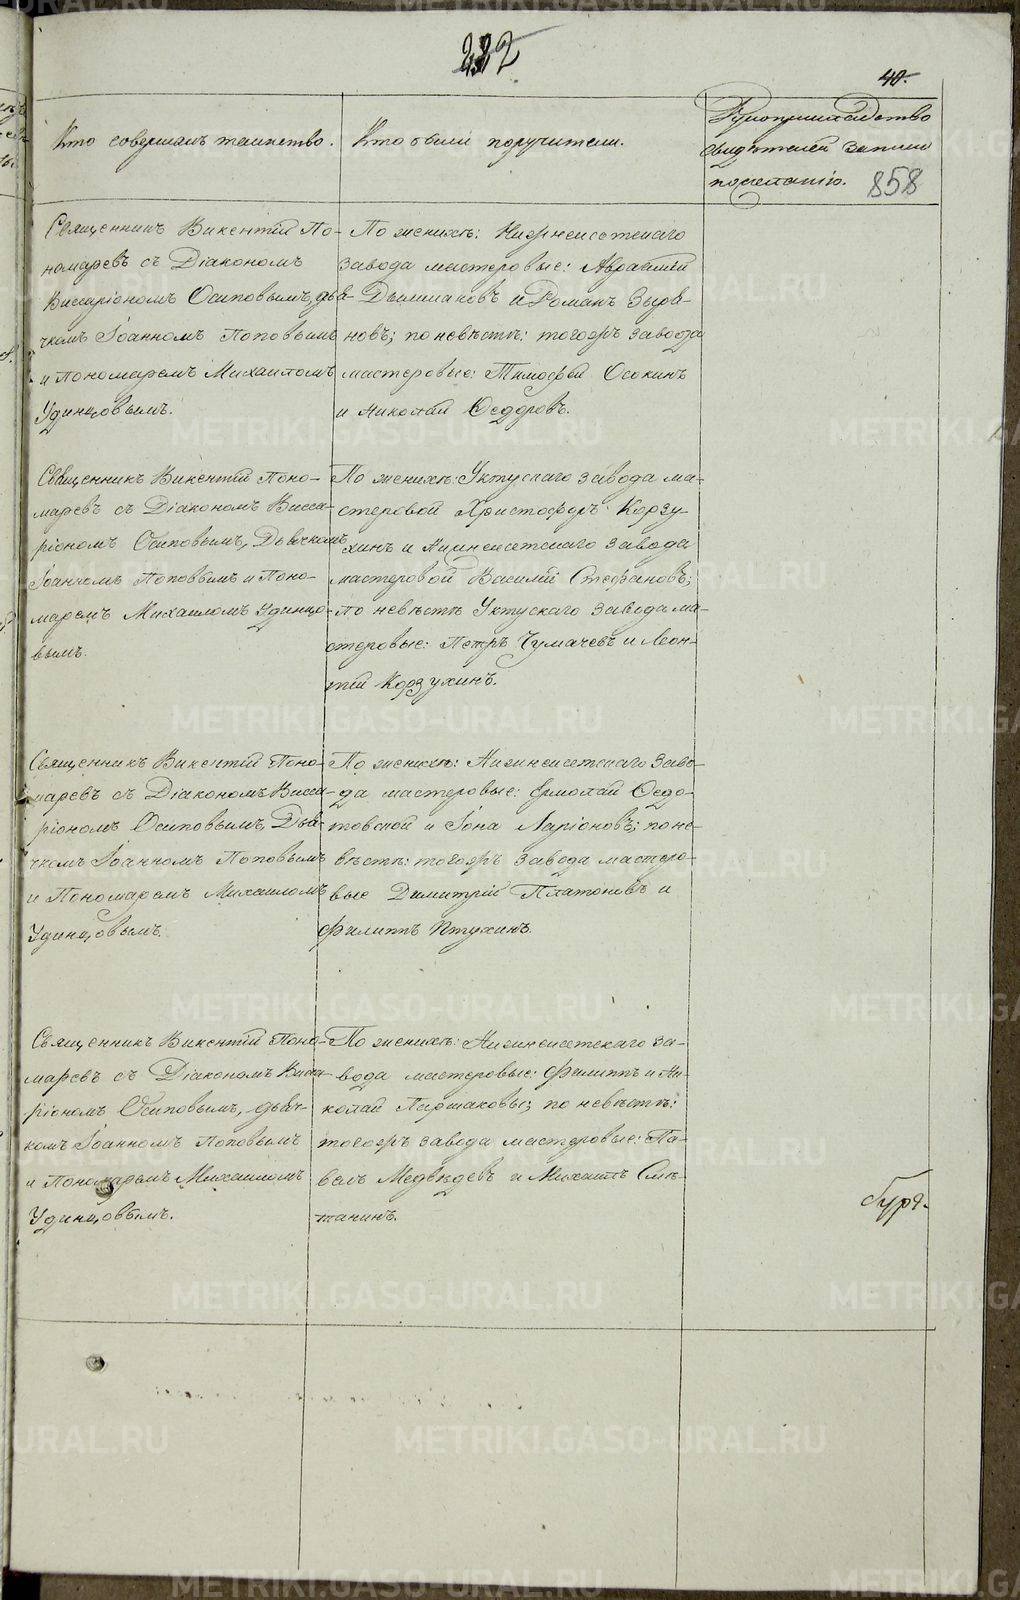 222
40.
Кто совершалъ таинство.
Кто были поручители.
Рукоприкладство
свидѣтелей записи
по желанію.
858
Священникъ Викентій По-
номаревъ съ Діакономъ
Виссаріономъ Осиповымъ, дья-
чкомъ Іоанномъ Поповымъ
и Пономаремъ Михаиломъ
Удинцовымъ.
По женихѣ: Нижнеисетскаго
завода мастеровые: Авраамій
и Романъ Зыря-
новъ; по невѣстѣ: тогожъ завода
мастеровые: Тимофей Осокинъ
и Николай Ѳедоровъ.
Священникъ Викентій Поно-
маревъ съ Діакономъ Висса-
ріономъ Осиповымъ, Дьячкомъ
Іоанномъ Поповымъ и Поно-
маремъ Михаиломъ Удинцо-
вымъ.
По женихѣ: Уктускаго завода ма-
стеровой Христофоръ Корзу-
хинъ и Нижнеисетскаго завода
мастеровой Василій Стефановъ;
по невѣстѣ Уктускаго завода ма-
стеровые: Петръ Чумачевъ и Леон-
тій Корзухинъ.
Священникъ Викентій Поно-
маревъ съ Діакономъ Висса-
ріономъ Осиповымъ, Дья-
чкомъ Іоанномъ Поповымъ
и Пономаремъ Михаиломъ
Удинцовымъ.
По женихѣ: Нижнеисетскаго заво-
да мастеровые: Ермолай Ѳедо-
товской и Іона Ларіоновъ; по не-
вѣстѣ: тогожъ завода мастеро-
вые Димитрій Платоновъ и
Филиппъ Птухинъ.
Священникъ Викентій Поно-
маревъ съ Діакономъ Висса-
ріономъ Осиповымъ, дьяч-
комъ Іоанномъ Поповымъ
и Пономаремъ Михаиломъ
Удинцовымъ.
По женихѣ: Нижнеисетскаго за-
вода мастеровые: Филиппъ и Ни-
колай Паршаковы; по невѣстѣ:
тогожъ завода мастеровые: Па-
велъ Медвѣдевъ и Михаилъ Смѣ-
танинъ.